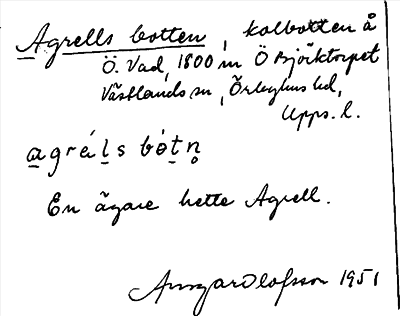 Agrells botten, kolbotten å
Ö. Vad, 1800 m Ö Björktorpet
Västlands sn, Örbyhus hd,
Upps. l.
agrél s bót n̥
En ägare hette Agrell.
Ansgar Olofsson 1951